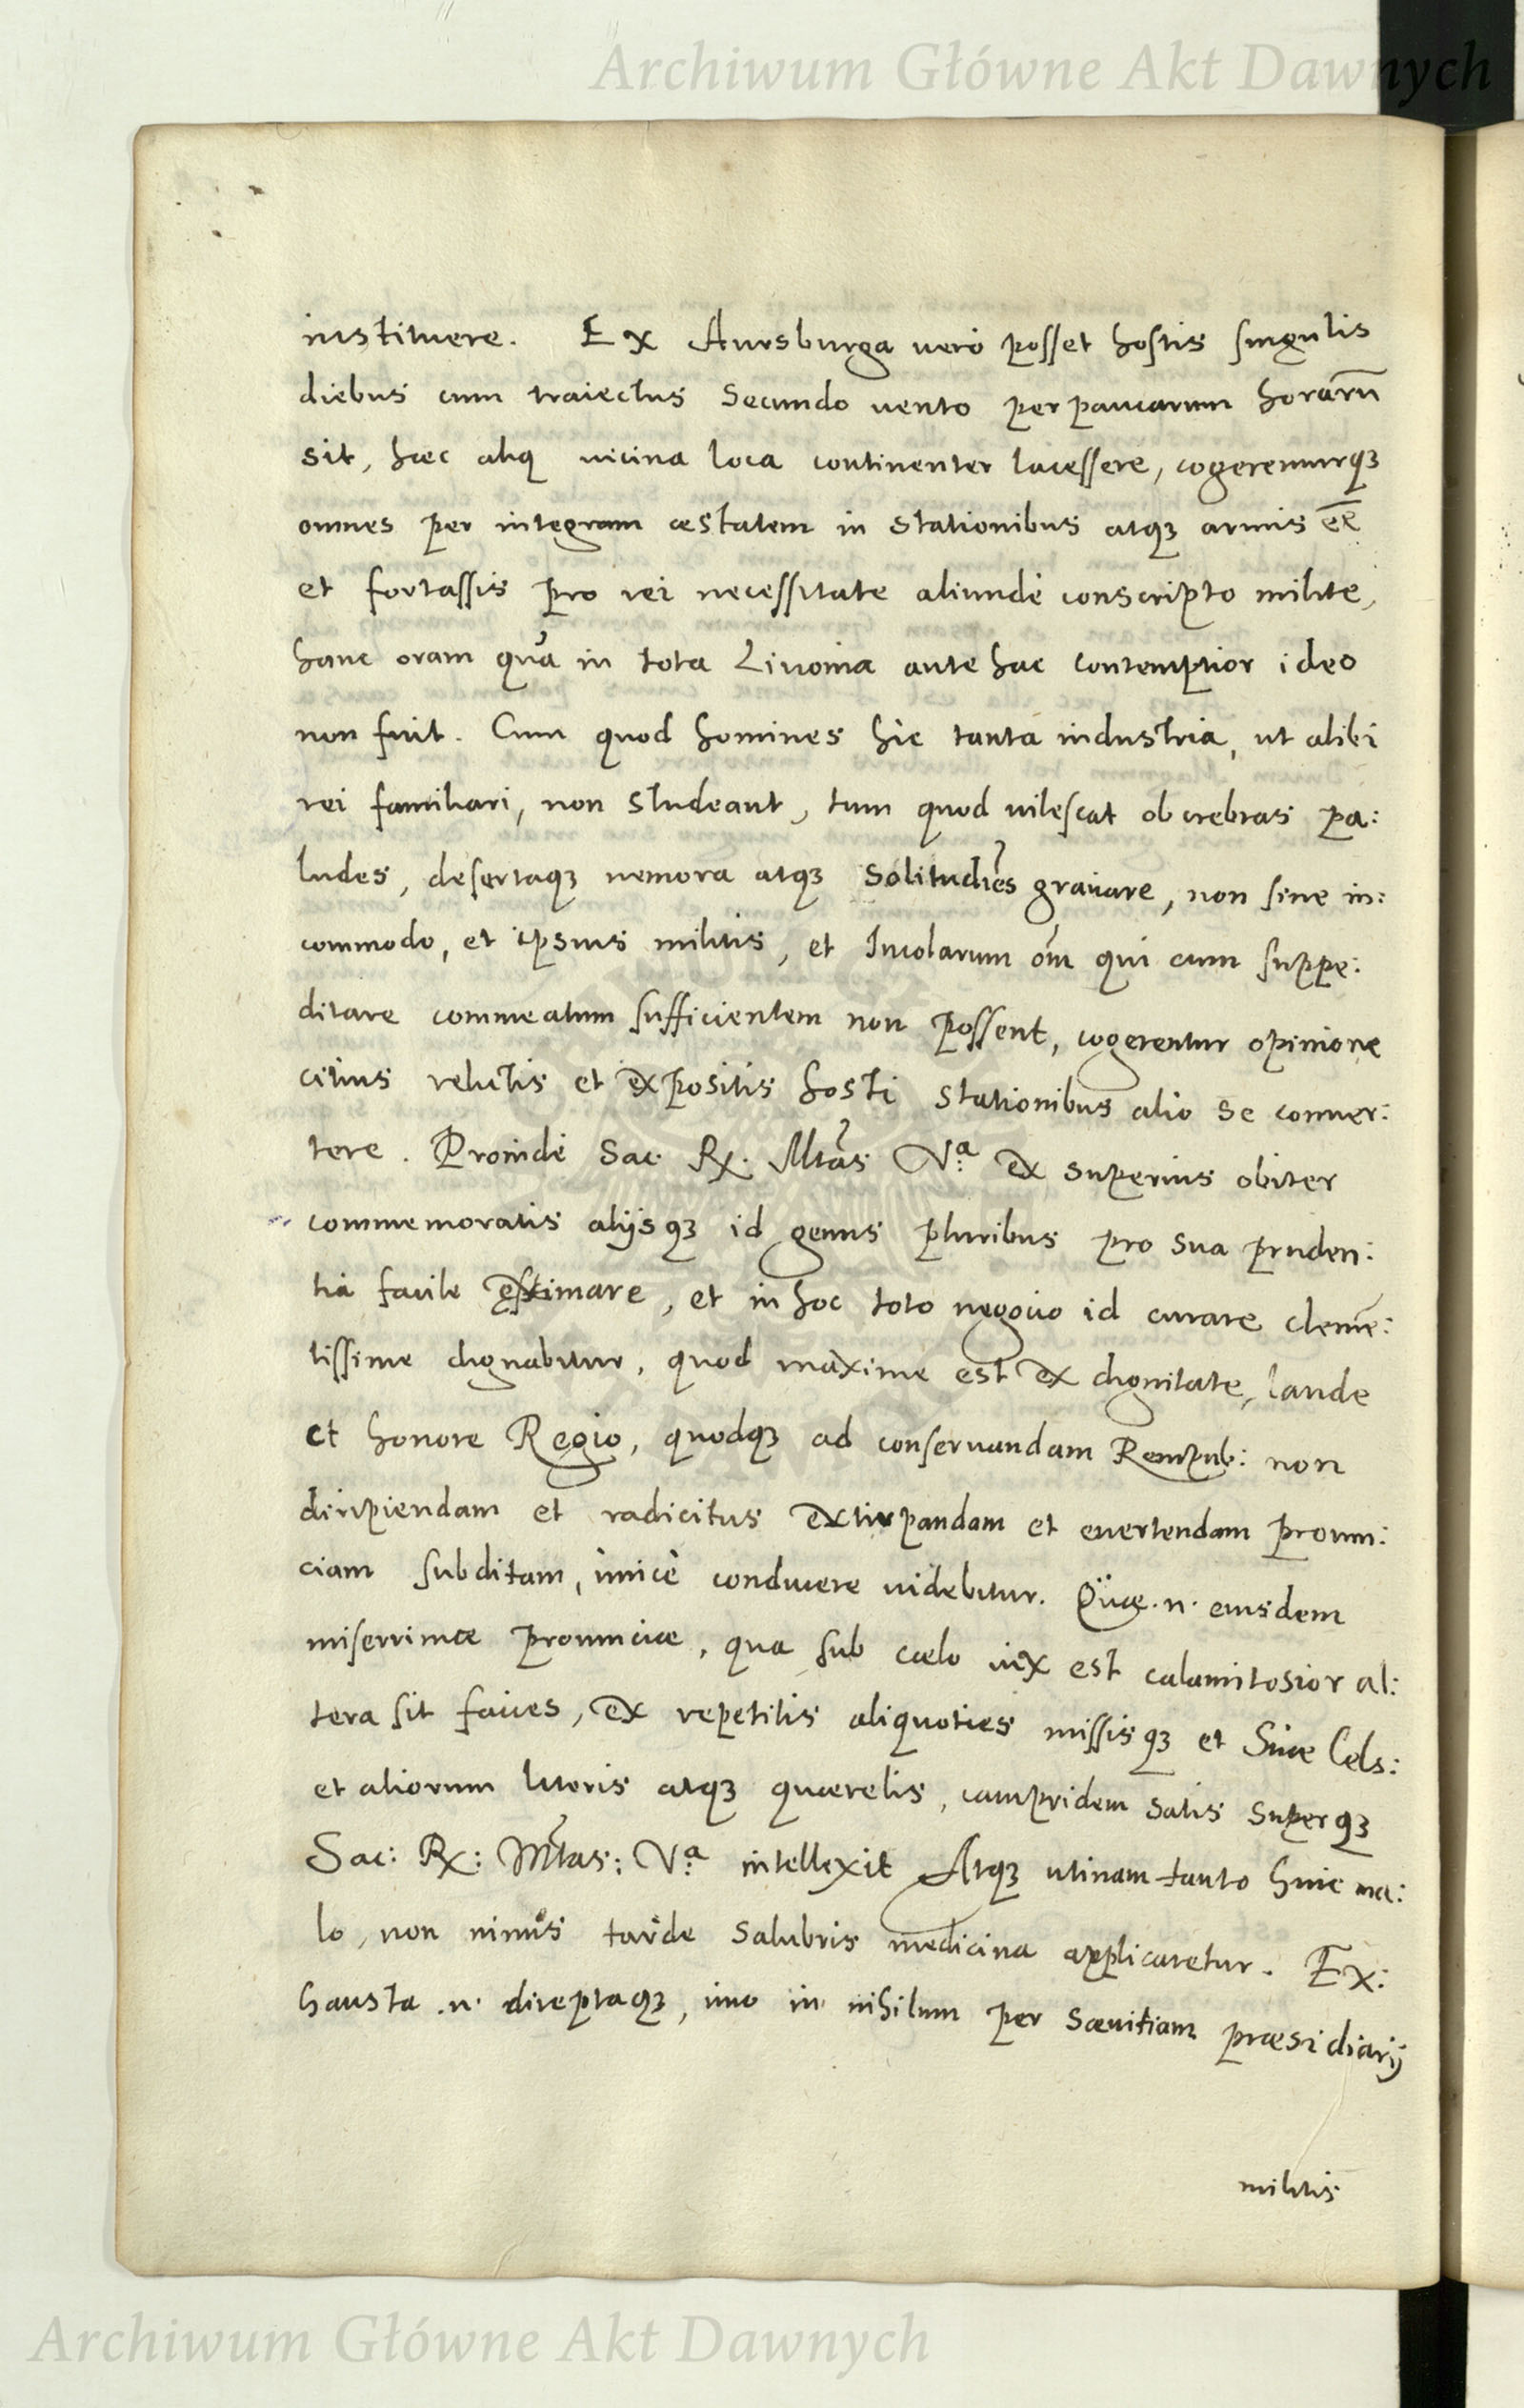 Archiwum Główne Akt Dawnych
instituere. Ex Aursburga verò posset hostis singulis
diebus cum traiectus secundo vento perpaucarum horarũ
sit, hæc aliq vicina loca continenter lacessere, cogeremurqꝫ
omnes per integram æstatem in stationibus atqꝫ armis eẽ
et fortassis pro rei necessitate aliundè conscripto milite,
hanc oram qua in tota Livonia ante hac contemptior ideo
non fuit. Cum quod homines hic tanta industria, ut alibi
rei familiari, non studeant, tum quod vilescat ob crebras pa:
ludes, desertaqꝫ nemora atqꝫ solitudĩes gravare, non sine in:
commodo, et ipsius militis, et Incolarum oĩm qui cum suppe:
ditare commeatum sufficientem non possent, cogerentur opinione
citius relictis et expositis hosti stationibus alio se conver:
tere. Proindè Sac. Rx. Mtas Vᵃ ex superius obiter
commemoratis alijsqꝫ id genus pluribus pro sua pruden:
tia facile ęstimare, et in hoc toto negocio id curare clemẽ:
tissime dignabitur, quod maxime est ex dignitate, laude
et honore Regio, quodqꝫ ad conservandam Rempub: non
diripiendam et radicitus extirpandam et evertendam provin:
ciam subditam, unicè conducere videbitur. Quæ.n. eiusdem
miserrimæ provinciæ, qua sub cælo vix est calamitosior al:
tera sit facies, ex repetitis aliquoties missisqꝫ et Suæ Cels:
et aliorum literis atqꝫ quærelis, iampridem satis superqꝫ
Sac: Rx: Mtas: Vᵃ intellexit Atqꝫ utinam tanto huic ma:
lo, non nimis tarde salubris medicina applicaretur. Ex:
hausta .n. direptaqꝫ, imo in nihilum per sævitiam præsidiarij
militis
Archiwum Główne Akt Dawnych